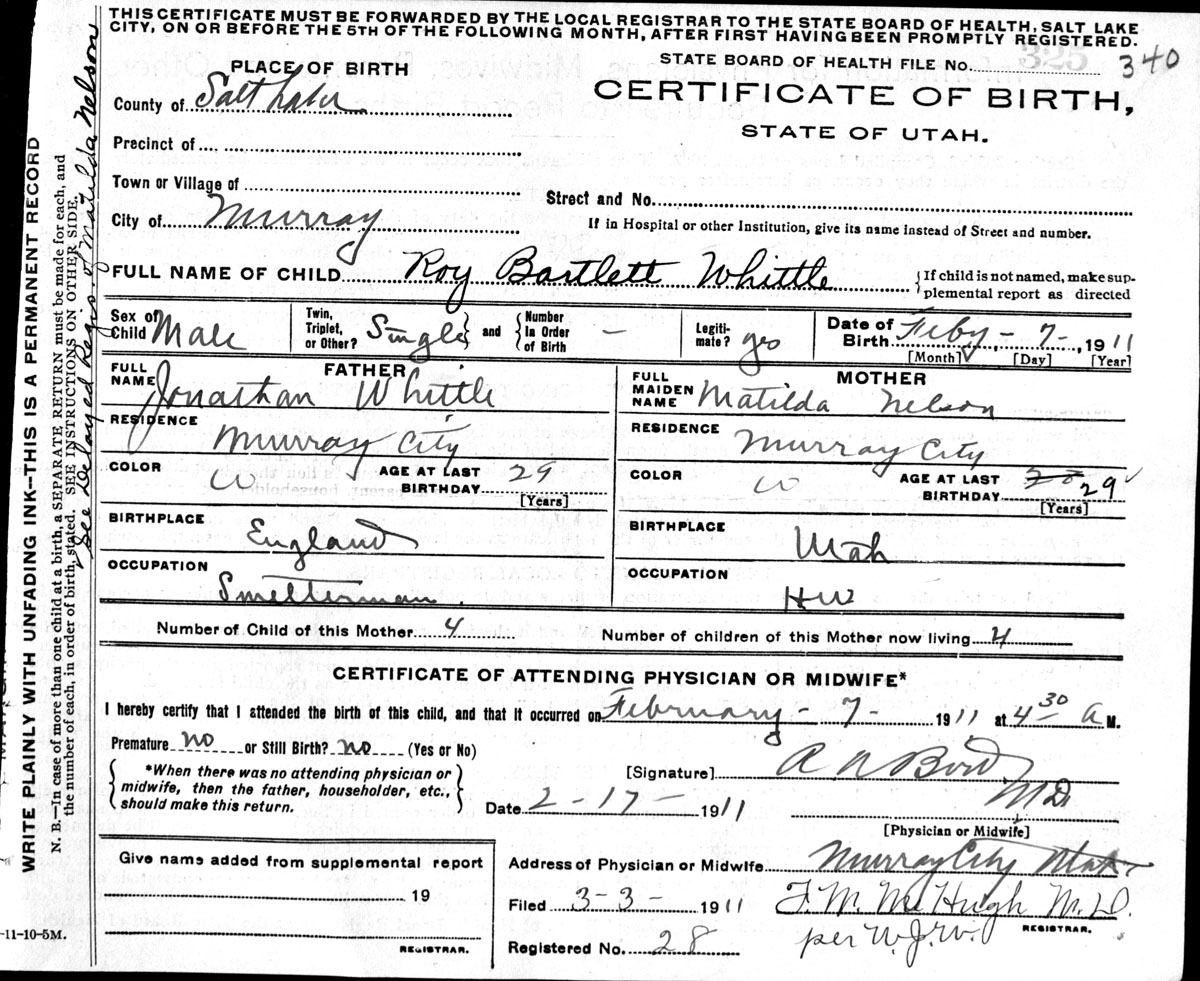 THIS CERTIFICATE MUST BE FORWARDED BY THE LOCAL REGISTRAR TO THE STATE BOARD OF HEALTH, SALT LAKE
CITY, ON OR BEFORE THE 5TH OF THE FOLLOWING MONTH, AFTER FIRST HAVING BEEN PROMPTLY REGISTERED.
PLACE OF BIRTH
STATE BOARD OF HEALTH FILE No. 325 340
County of Salt Lake
CERTIFICATE OF BIRTH,
STATE OF UTAH.
Precinct of
Town or Village of
Street and No.
City of Murray
If in Hospital or other Institution, give its name instead of Street and number.
FULL NAME OF CHILD Roy Bartlett Whittle
{If child is not named, make sup-
plemental report as directed
Sex of Child Male
Twin, Triplet, or Other? Single} and {Number in Order of Birth —
Legiti-mate? yes
Date of Birth Feby - 7 -, 1911
[Month] [Day] [Year]
FATHER
FULL NAME Jonathan Whittle
MOTHER
FULL MAIDEN NAME Matilda Nelson
RESIDENCE Murray City
RESIDENCE Murray City
COLOR W AGE AT LAST BIRTHDAY 29 [Years]
COLOR W AGE AT LAST BIRTHDAY 28 29 [Years]
BIRTHPLACE England
BIRTHPLACE Utah
OCCUPATION Smelterman.
OCCUPATION HW
Number of Child of this Mother 4 Number of children of this Mother now living 4
CERTIFICATE OF ATTENDING PHYSICIAN OR MIDWIFE*
I hereby certify that I attended the birth of this child, and that it occurred on February - 7 - 1911 at 4 30 a M.
Premature no or Still Birth? no (Yes or No)
{*When there was no attending physician or
midwife, then the father, householder, etc.,
should make this return.}
[Signature] M.D.
Date 2-17- 1911
[Physician or Midwife]
Give name added from supplemental report
19
REGISTRAR.
Address of Physician or Midwife Murray City Utah
Filed 3-3- 1911 F. M. McHugh M.D.
REGISTRAR.
per W.J.W.
Registered No. 28
-11-10-5M.
WRITE PLAINLY WITH UNFADING INK—THIS IS A PERMANENT RECORD
N. B.—In case of more than one child at a birth, a SEPARATE RETURN must be made for each, and
the number of each, in order of birth, stated. SEE INSTRUCTIONS ON OTHER SIDE.
See Delayed Regis. of Matilda Nelson